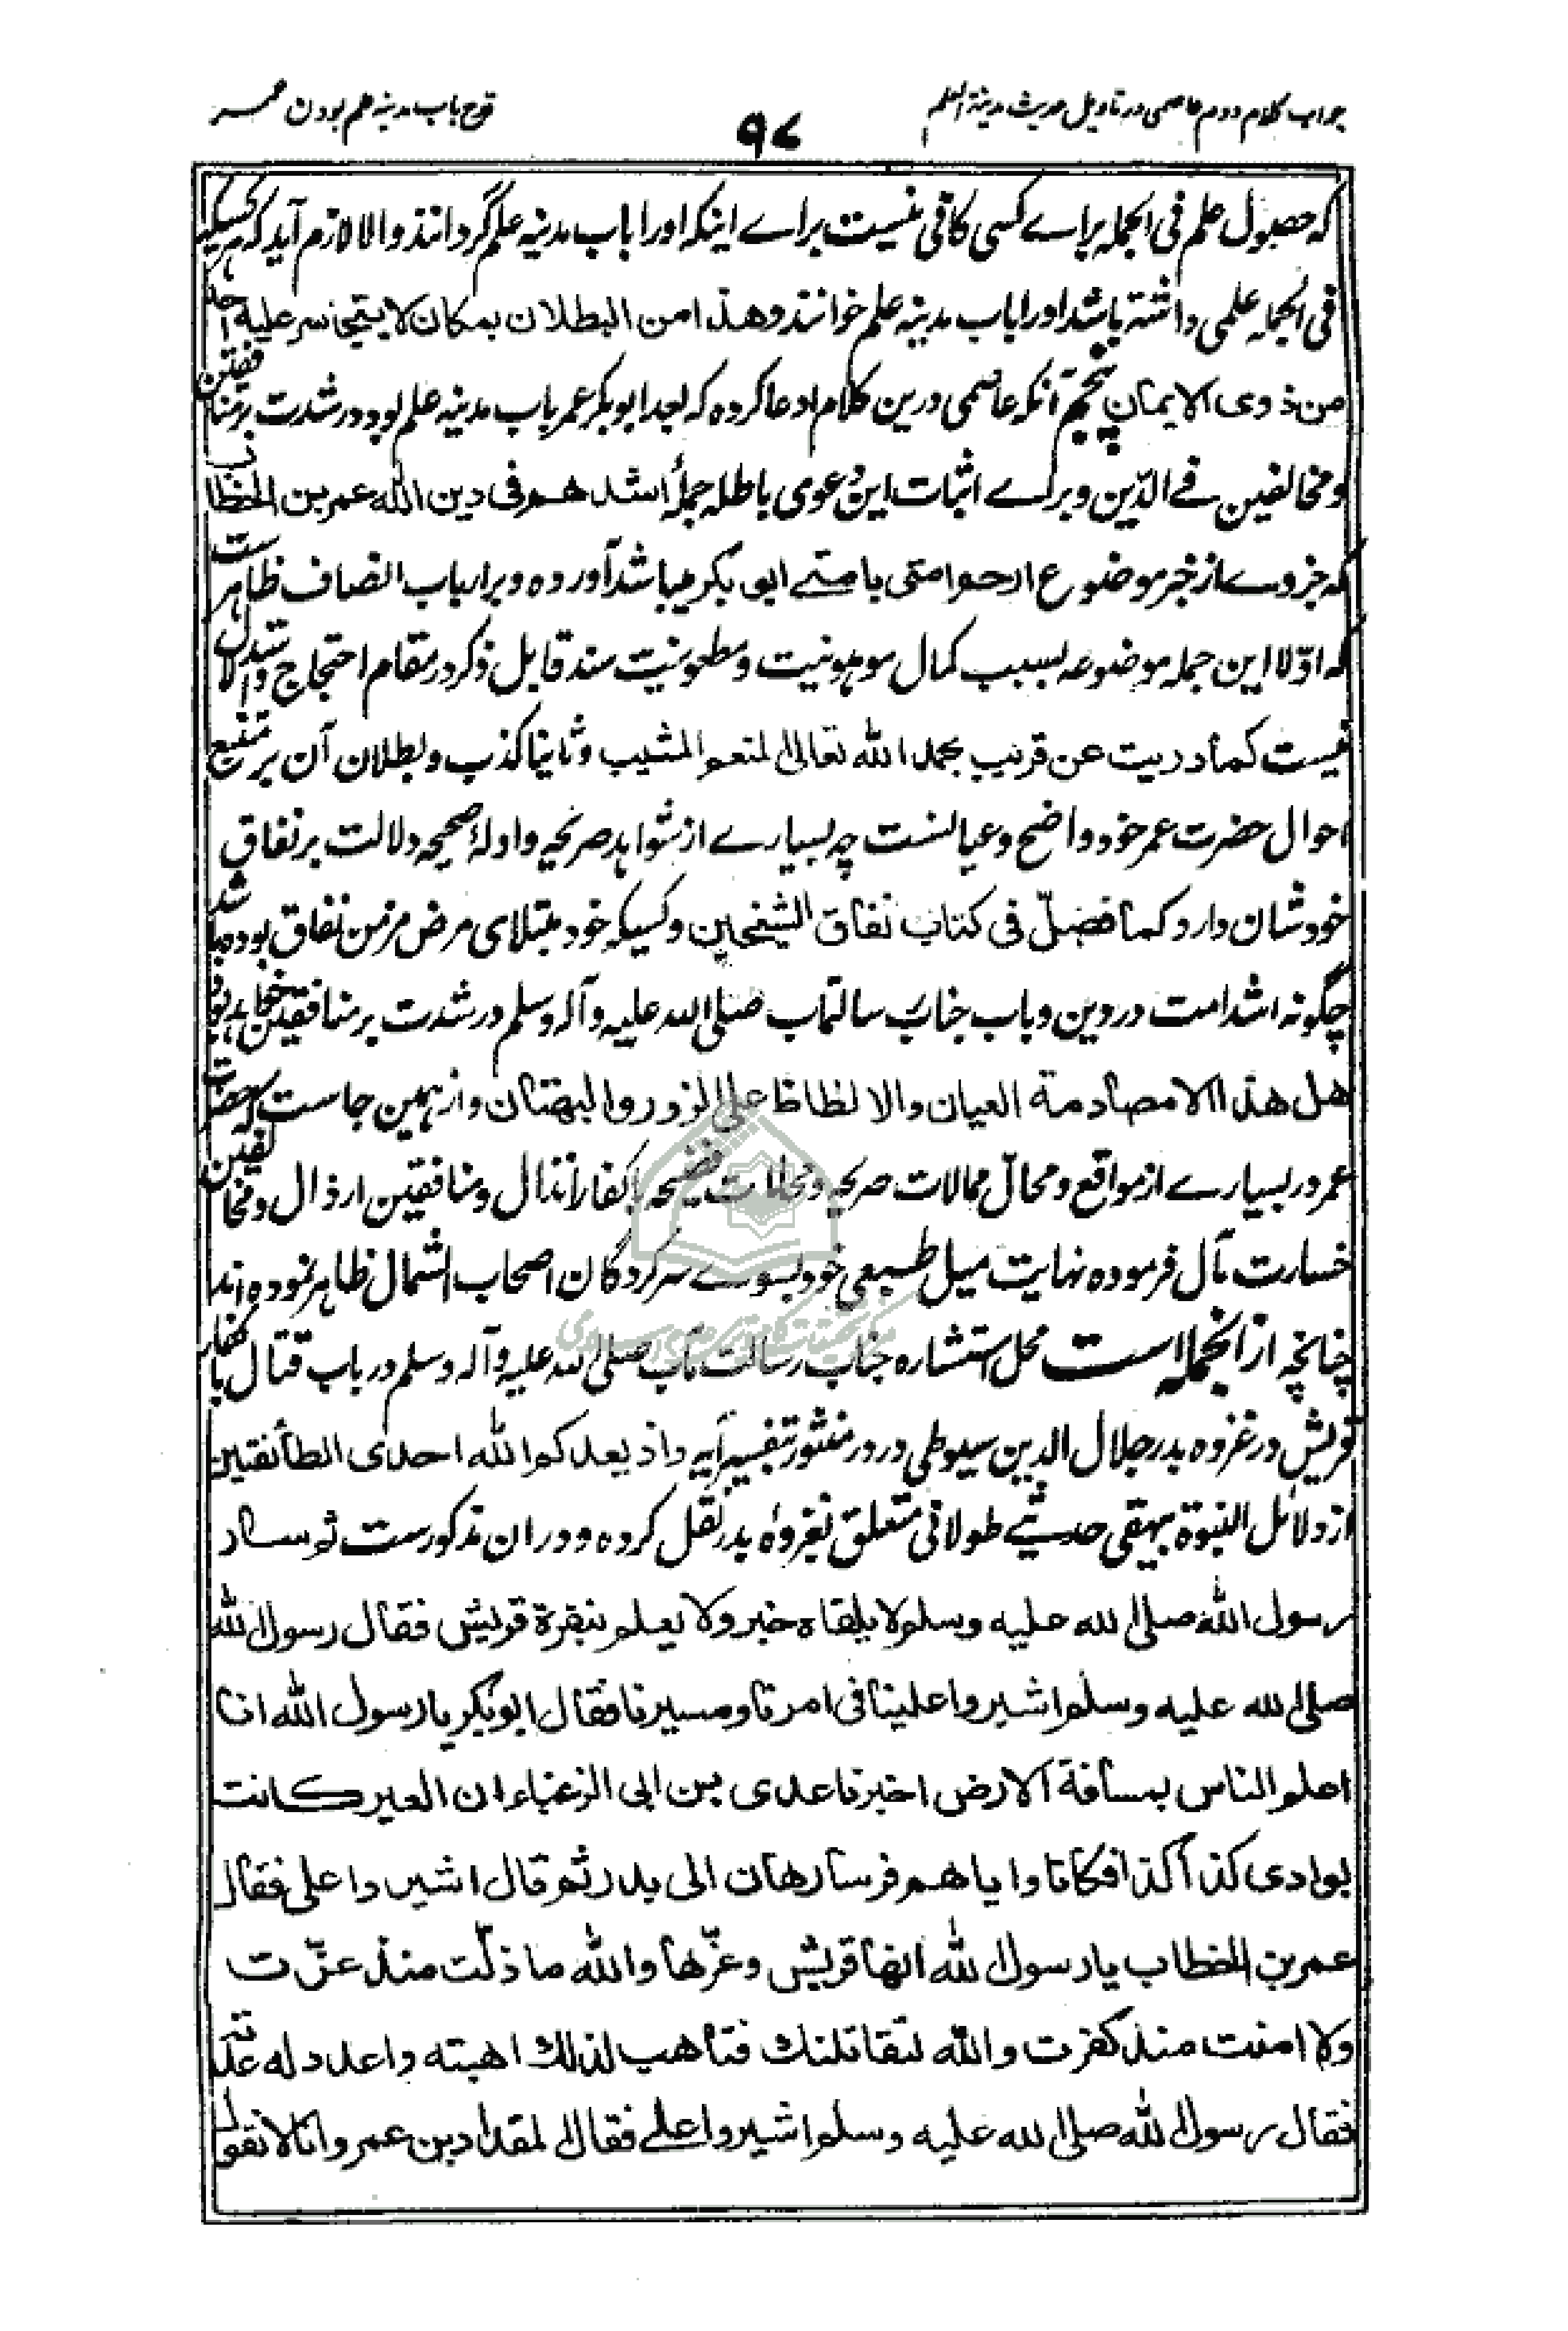 جواب کلام دوم عاصمی در تاویل حدیث مدینة العلم
۹۸
قدح باب مدینه علم بودن عمر
که حصول علم فی الجمله برای کسی کافی نیست برای اینکه او را باب مدینه علم گردانند والا لازم آید که هر کسیکه
فی الجمله علمی داشته باشد او را باب مدینه علم خوانند وهذا من البطلان بمکان لا یتجاسر علیه احد
من ذوی الایمان پنجم آنکه عاصمی درین کلام ادعا کرده که بعد ابوبکر عمر باب مدینه علم بود در شدت بر منافقین
ومخالفین فے الدّین و برائے اثبات این دعوی باطله جملهٔ اشدهم فی دین الله عمر بن الخطاب
که جزوے از خبر موضوع ارحم امتی بامتے ابی بکر میباشد آورده و بر ارباب انصاف ظاهرست
که اوّلا این جمله موضوعه بسبب کمال موهونیت و مطعونیت سند قابل ذکر در مقام احتجاج و استدلال
نیست کما دریت عن قریب بحمد الله تعالی المنعم المثیب و ثانیا کذب و بطلان آن بر متتبع
احوال حضرت عمر خود واضح و عیانست چه بسیارے از شواهد صریحه و ادلهٔ صحیحه دلالت بر نفاق
خودشان دارد کما فصّل فی کتاب نفاق الشیخین و کسیکه خود مبتلای مرض مزمن نفاق بوده باشد
چگونه اشد امت در دین و باب جناب رسالتمآب صلی الله علیه و آله وسلم در شدت بر منافقین خواهد بود
هل هذا الا مصادمة العیان والالظاظ علی الزور والبهتان و از همین جاست که حضرت
عمر در بسیارے از مواقع و محالّ ممالات صریحه و فضیحه با کفار انذال و منافقین ارذال و مخالفین
خسارت مآل فرموده نهایت میل طبیعی خود بسوے سرکردگان اصحاب الشمال ظاهر نموده اند
چنانچه از انجمله است محل استشاره جناب رسالت مآب صلی الله علیه وآله وسلم در باب قتال با کفار
قریش در غزوه بدر جلال الدین سیوطی در در منثور بتفسیر آیه واذ یعدکم الله احدی الطائفتین
از دلائل النبوة بیهقی حدیثے طولانی متعلق بغزوهٔ بدر نقل کرده و دران مذکورست ثم سار
رسول الله صلی الله علیه وسلم لا یلقاه خبر ولا یعلم بنفرة قریش فقال رسول الله
صلی الله علیه وسلم اشیروا علینا فی امرنا ومسیرنا فقال ابوبکر یا رسول الله انا
اعلم الناس بمسافة الارض اخبرنا عدی بن ابی الزغباء ان العیر کانت
بوادی کذا کذا فکانا وایاهم فرسا رهان الی بدر ثم قال اشیروا علی فقال
عمر بن الخطاب یا رسول الله انها قریش وعزّها والله ما ذلّت منذ عزّت
ولا امنت منذ کفرت والله لتقاتلنك فتاهب لذلك اهبته واعدد له عدته
فقال رسول الله صلی الله علیه وسلم اشیروا علے فقال المقداد بن عمرو انا لا نقول